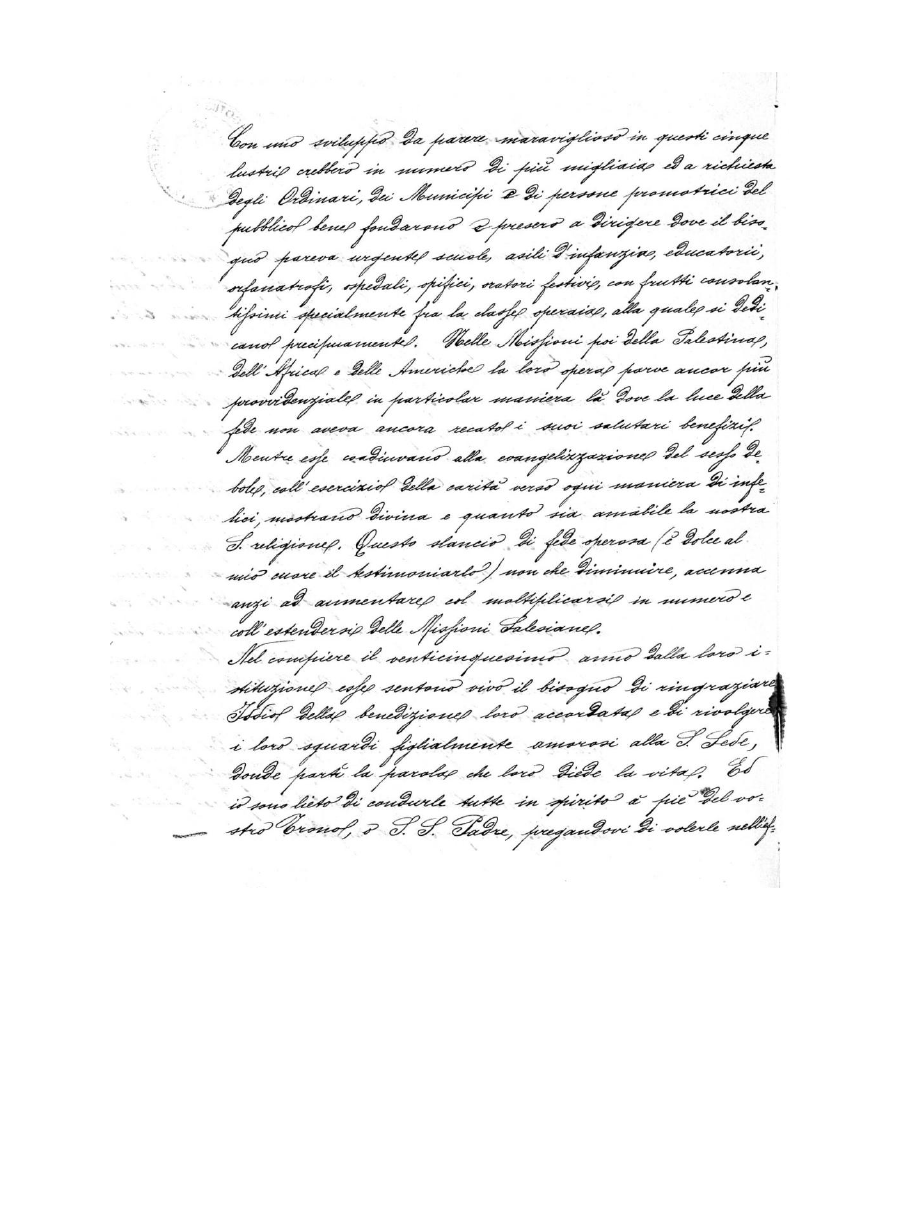 Con uno sviluppo da parere maraviglioso in questi cinque
lustri crebbero in numero di più migliaia ed a richiesta
degli Ordinari, dei Municipi e di persone promotrici del
pubblico bene fondarono e presero a dirigere dove il biso-
gno pareva urgente scuole, asili d'infanzia, educatorii,
orfanatrofi, ospedali, opifici, oratori festivi, con frutti consolan-
tissimi specialmente fra la classe operaia, alla quale si dedi-
cano precipuamente. Nelle Missioni poi della Palestina,
dell'Africa e delle Americhe la loro opera parve ancor più
provvidenziale in particolar maniera là dove la luce della
fede non aveva ancora recato i suoi salutari benefizi.
Mentre esse coadiuvano alla evangelizzazione del sesso de-
bole, coll'esercizio della carità verso ogni maniera di infe-
lici, mostrano divina e quanto sia amabile la nostra
S. religione. Questo slancio di fede operosa (è dolce al
mio cuore il testimoniarlo) non che diminuire, accenna
anzi ad aumentare col moltiplicarsi in numero e
coll'estendersi delle Missioni Salesiane.
Nel compiere il venticinquesimo anno dalla loro i-
stituzione esse sentono vivo il bisogno di ringraziare
Iddio della benedizione loro accordata e di rivolgere
i loro sguardi figlialmente amorosi alla S. Sede,
donde partì la parola che loro diede la vita. Ed
io sono lieto di condurle tutte in ispirito a piè del vo-
stro Trono, o S. S. Padre, pregandovi di volerle nell'ef-